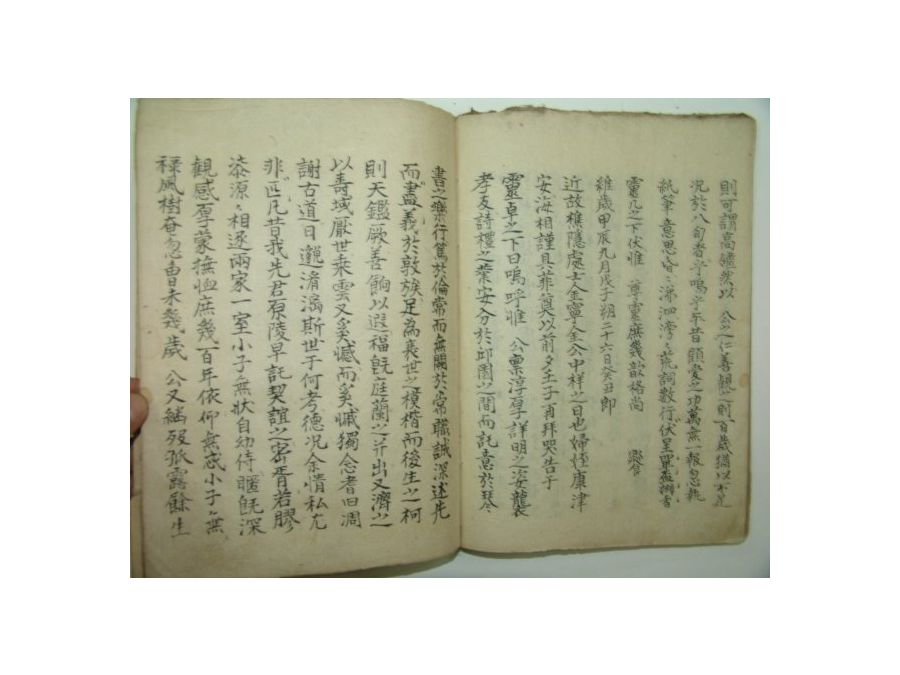 則可謂高 然以 公之仁善觀之則百歲猶以不足
況於八旬者乎嗚乎平昔顧愛之功萬無一報忽執
紙筆意思昏〻涕泗滂〻荒詞數行伏呈單盃拚告
靈几之下伏惟 尊靈庶幾歆格尚 饗
維歲甲辰九月戊子朔二十六日癸丑卽
近故樵隱處士金寧金公中祥之日也婦姪康津
安海相謹具菲奠以前夕壬子再拜哭告于
靈卓之下曰嗚呼惟 公稟淳厚詳明之姿襲
孝友詩禮之業安分於邱園之間而託意於琴
書之樂行篤於倫常而無闕於常職誠深述先
而盡義於敦族足為衰世之模楷而後生之柯
則天鑑厥善餉以遐福旣庭蘭之并出又濟之
以壽域厭世乘雲又奚憾而奚慽獨念者曰凋
謝古道日 淆漓斯世于何考德況余情私尤
非匹凡昔我先君原陵早託契誼之密胥若膠
漆源〻相逐兩家一室小子無狀自幼侍 旣深
觀感厚蒙撫恤庶幾百年依仰無惑小子〻無
祿風樹奄忽曾未幾歲 公又繼歿孤露餘生